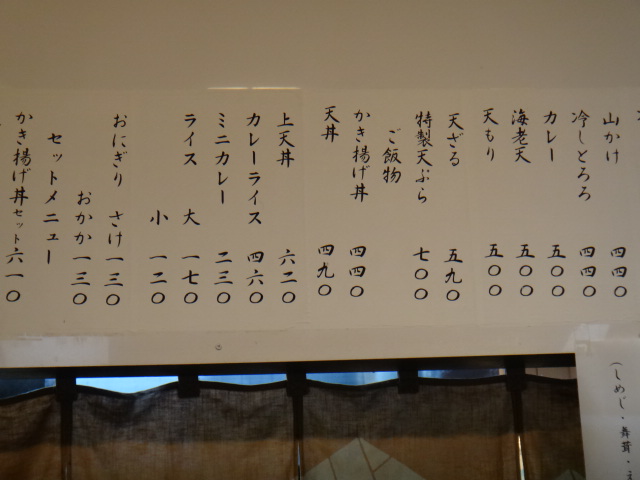 山かけ 四四〇
冷しとろろ 四四〇
カレー 五〇〇
海老天 五〇〇
天もり 五〇〇
天ざる 五九〇
特製天ぷら 七〇〇
ご飯物
かき揚げ丼 四四〇
天丼 四九〇
上天丼 六二〇
カレーライス 四六〇
ミニカレー 二三〇
ライス 大 一七〇
小 一二〇
おにぎり さけ 一三〇
おかか 一三〇
セットメニュー
かき揚げ丼セット 六一〇
(しめじ・舞茸・え